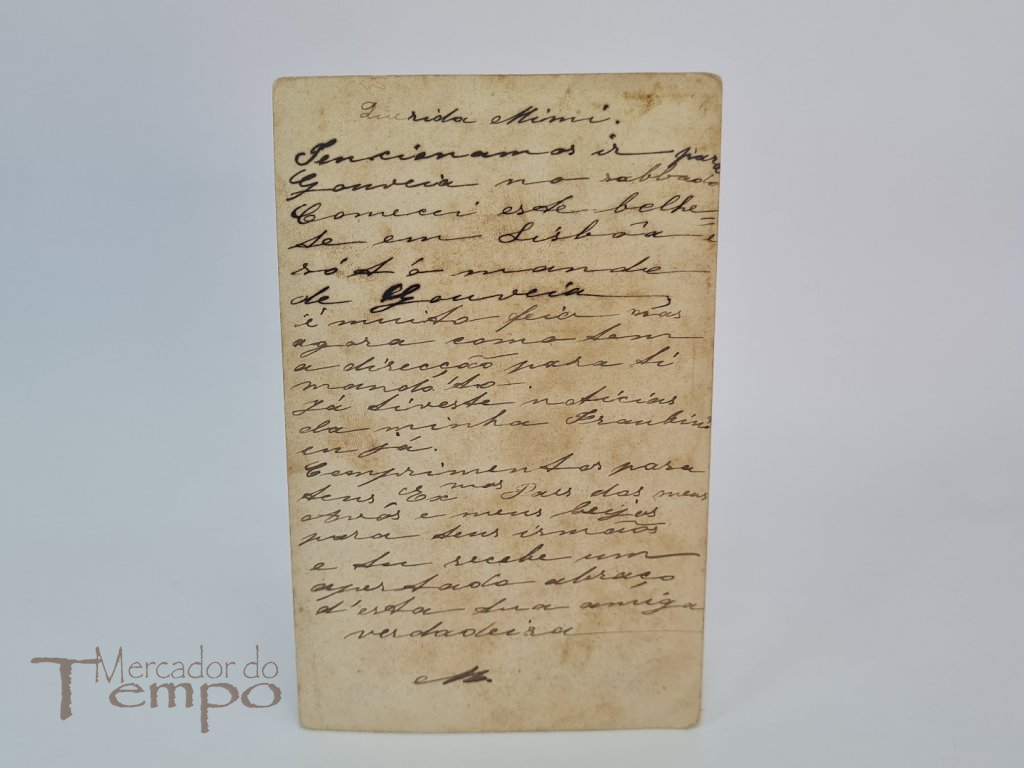 Querida Mimi.
Tencionamos ir para
Gouveia no sabbado
Comecei este belhe=
te em Lisbôa e
só t'ó mande
de Gouveia,
é muito feio mas
agora como tem
a direcção para ti
mandó'to.
Já tiveste noticias
da minha
eu já.
Comprimentos para
teus Ex.mos Pais dos meus
avós e meus beijos
para teus irmãos
e tu recebe um
apertado abraço
d'esta tua amiga
verdadeira
M.
Mercador do
Tempo